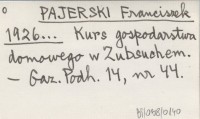 PAJERSKI Franciszek
1926... Kurs gospodarstwa
domowego w Zubsuchem.
– Gaz. Podh. 14, nr 44.